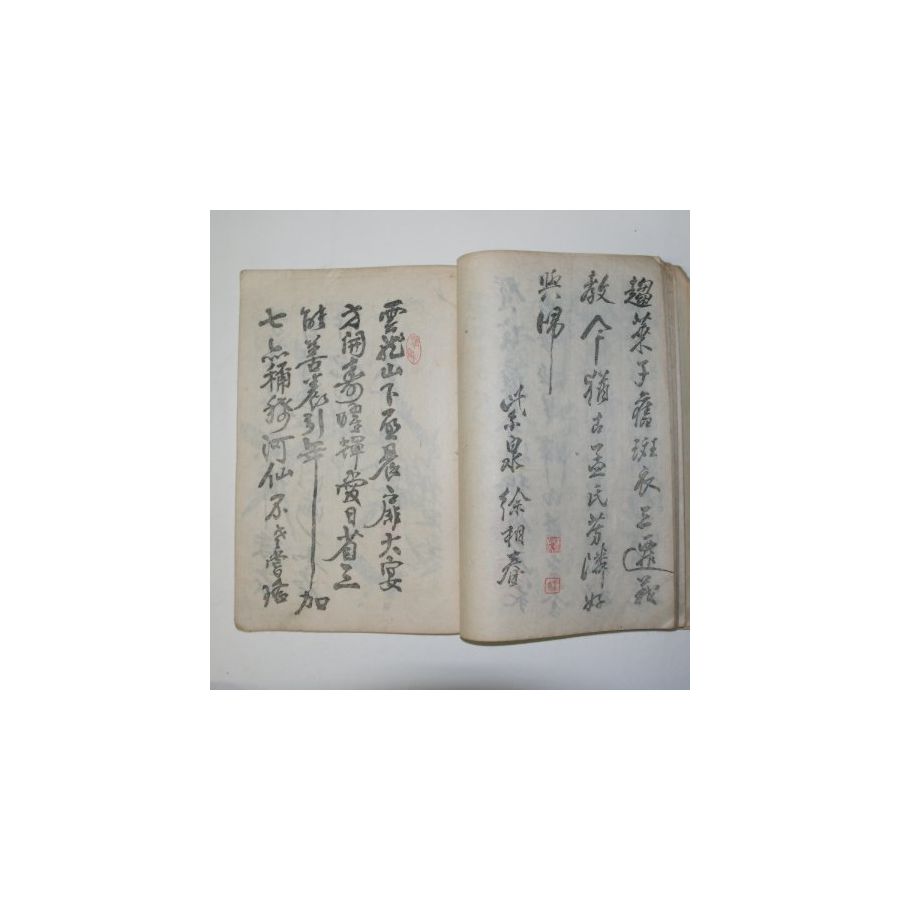 趨萊子舊斑衣三遷義
敎今猶古孟氏芳隣好
與歸
紫泉徐相春
雲龍山下啓晨扉大宴
方開壽曜輝愛日省三
能善養引年加
七亦稱稀河仙不老嘗瑤